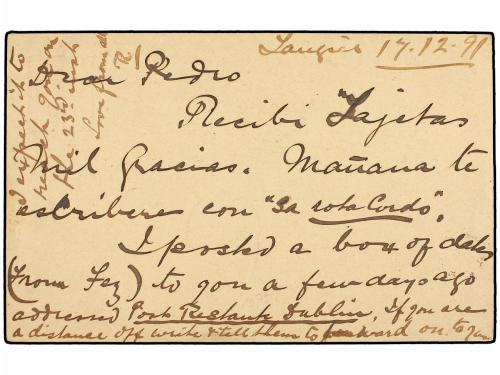 Tangier 17.12.91
Dear Pedro
Recibi Tajetas
Mil Gracias. Mañana te
escribere con "La rota Cordo".
I posted a box of dates
(From Fez) to you a few days ago
addressed Post Restante Dublin. If you are
a distance off write & tell them to forward on to you
I expect it to
reach you on
the 23rd inst
Love from all
R